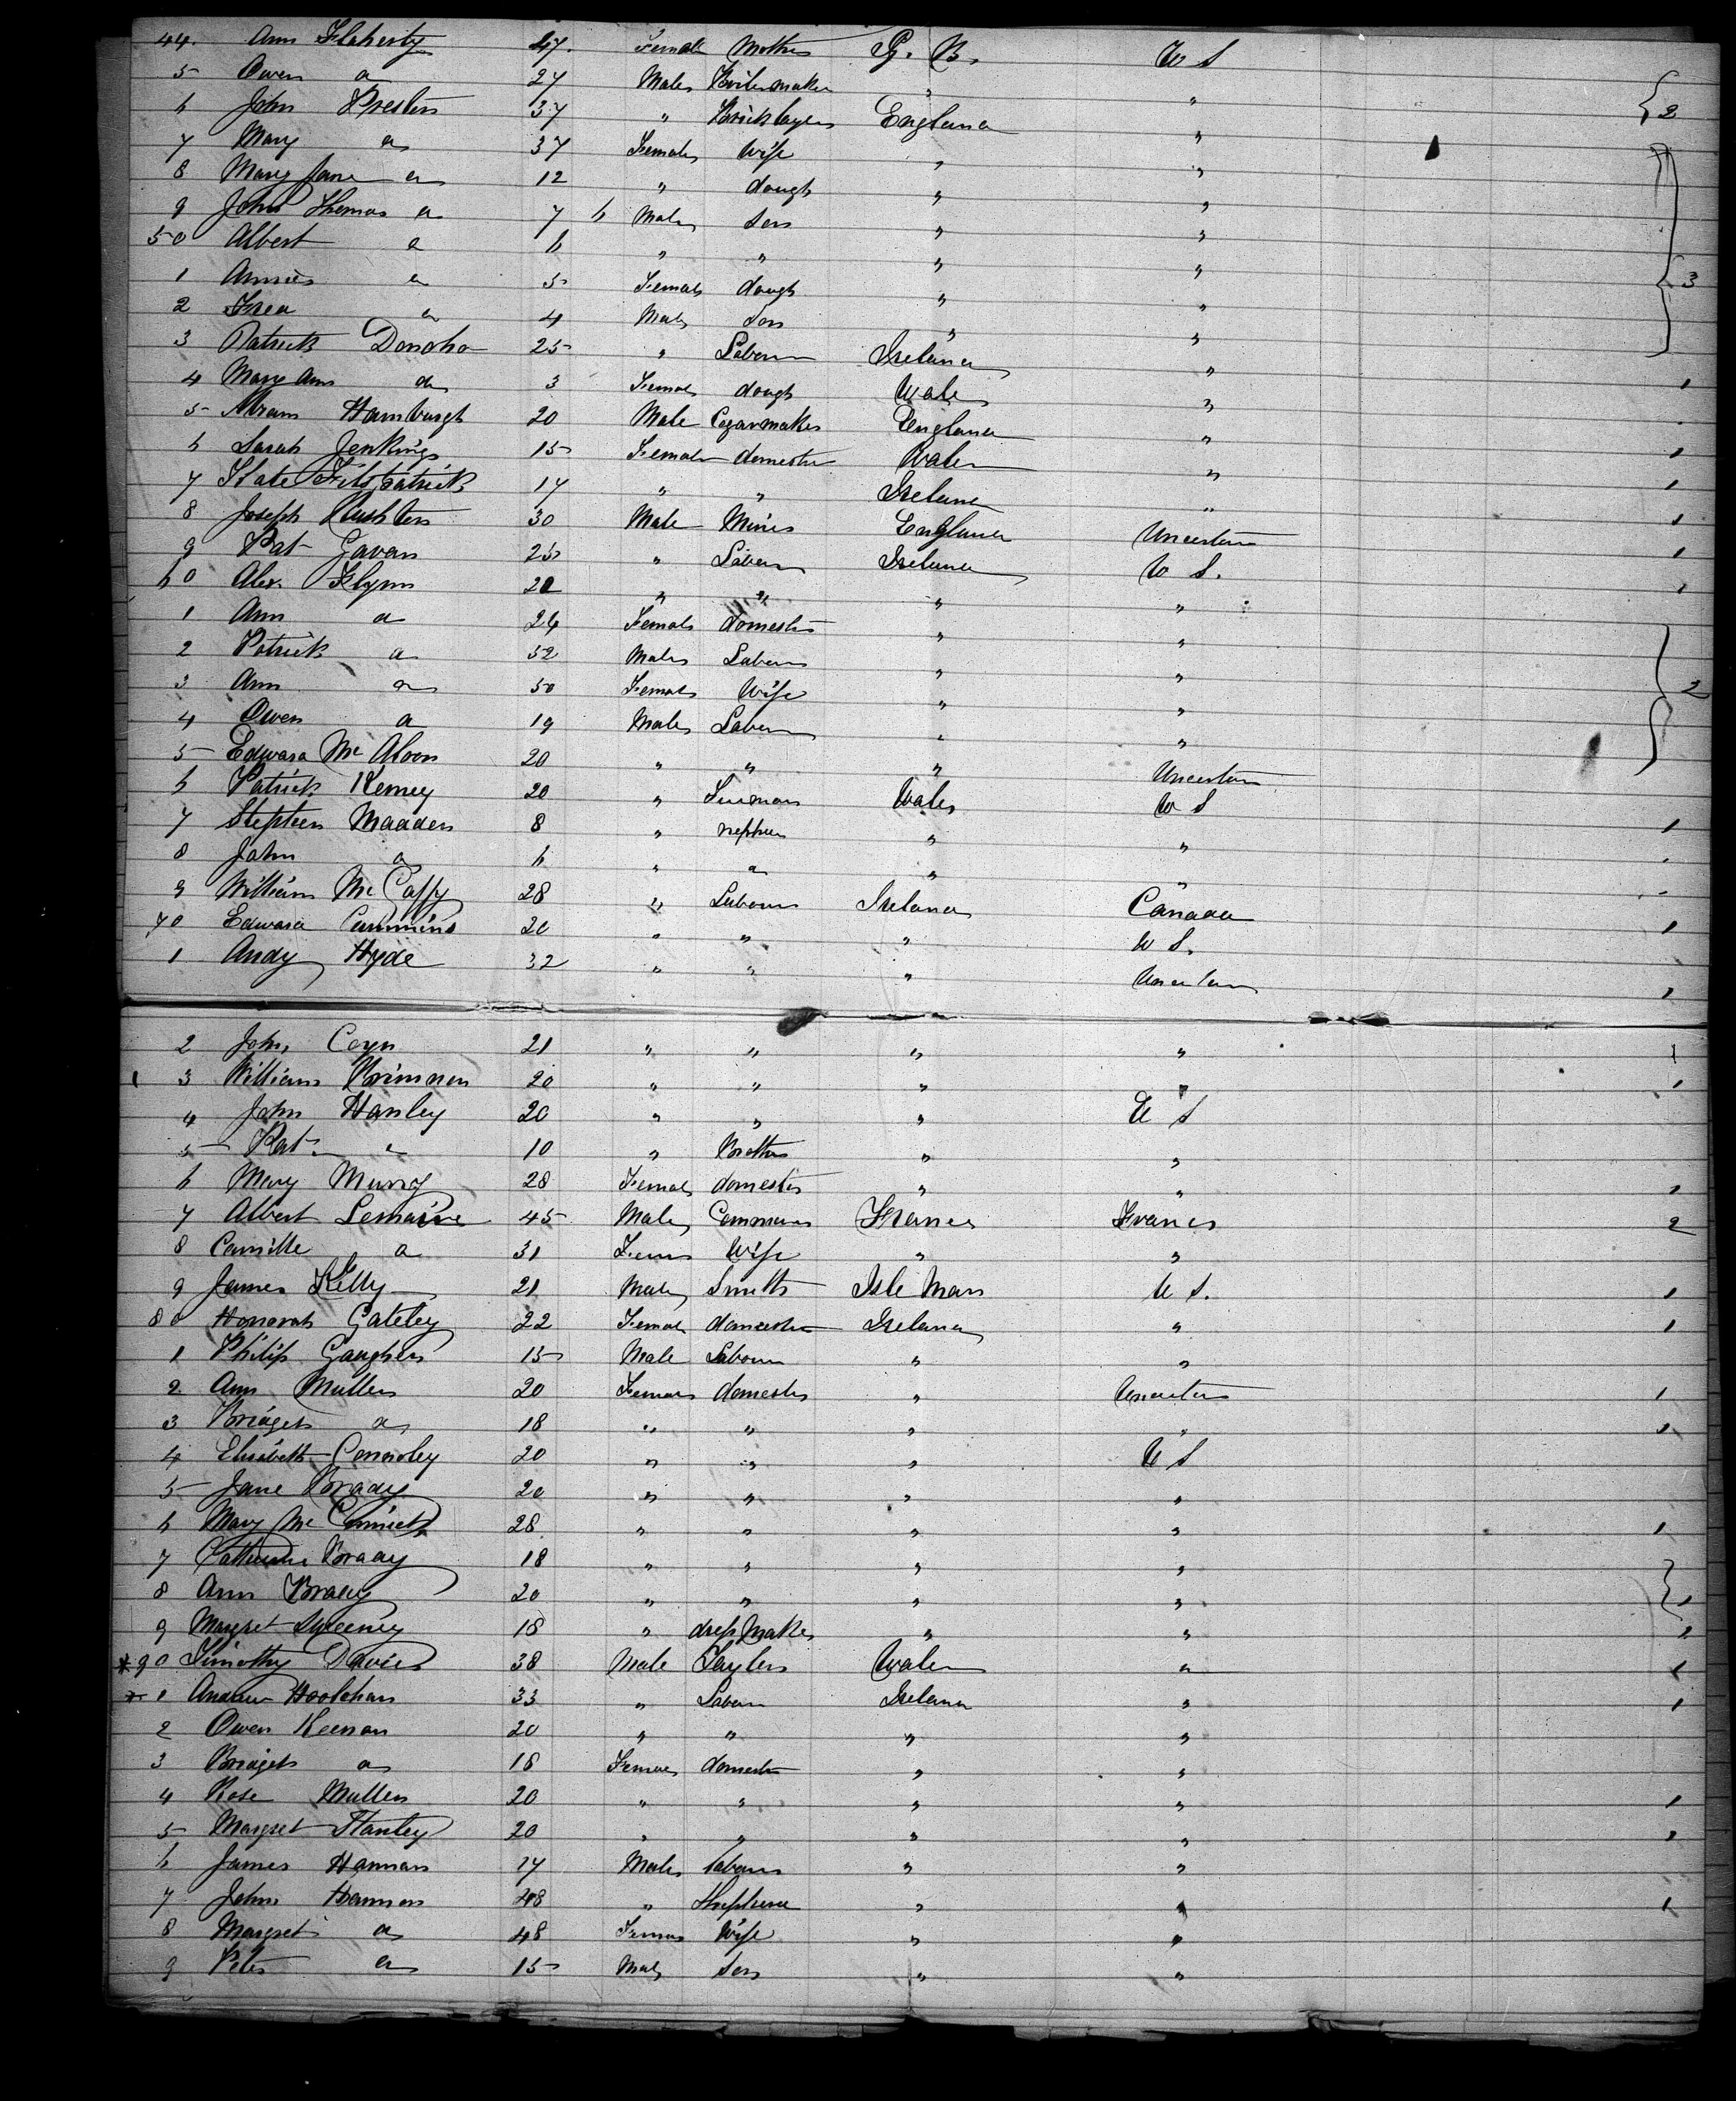 44. Ann Flaherty 47. Female Mother G. B. U S
5 Owen a 27 Male Boilermaker " "
6 John Preston 37 " Bricklayer England " 2
7 Mary a 37 Female Wife " "
8 Mary Jane a 12 " dough " "
9 John Thomas a 7 6 Male Son " "
50 Albert a 6 " " " "
1 Annie a 5 Female dough " " 3
2 Fred a 4 Male Son " "
3 Patrick Donoho 25 " Labour Ireland "
4 Mary Ann do 3 Female dough Wales " 1
5 Abram Hamburgh 20 Male Cegarmaker England "
6 Sarah Jenkings 15 Female domestic Wales " 1
7 Kate Fitzpatrick 17 " " Ireland " 1
8 Joseph Rushton 30 Male Miner England Uncertain 1
9 Pat Gavan 25 " Labour Ireland U S. 1
60 Alex. Flynn 22 " " " " 1
1 Ann a 24 Female domestic " "
2 Patrick a 52 Male Labour " "
3 Ann a 50 Female Wife " " 2
4 Owen a 19 Male Labour " "
5 Edward Mc Aloon 20 " " " Uncertain
6 Patrick Kerney 20 " Fireman Wales U S
7 Stephen Madden 8 " nephew " " 1
8 John a 6 " a " "
9 William Mc Caffy 28 " Labour Ireland Canada
70 Edward Cummins 20 " " " U S. 1
1 Andy Hyde 32 " " " Uncertain 1
2 John Coyn 21 " " " " 1
1 3 William Brimnen 20 " " " " 1
4 John Hanley 20 " " " U S
5 Pat a 10 " Brother " "
6 Mary Murray 28 Female domestic " " 1
7 Albert Lemaire 45 Male France France 2
8 Camille a 31 Fem Wife " "
9 James Kelly 21 Male Smith Isle Man U S. 1
80 Honorah Gateley 22 Female domestic Ireland " 1
1 Philip Gaughen 15 Male Labour " "
2 Ann Mullen 20 Female domestic " Uncertain 1
3 Bridget a 18 " " " " 1
4 Elisabeth Connoley 20 " " " U S
5 Jane Brady 20 " " " "
6 Mary Mc 28 " " " " 1
7 Catherine Brady 18 " " " "
8 Ann Brady 20 " " " " 1
9 Margret Sweeney 18 " dressMaker " " 1
* 90 Timothy Davies 38 Male Taylor Wales " 1
* 1 Andrew Hoolehan 33 " Labour Ireland " 1
2 Owen Keenan 20 " " " "
3 Bridget a 18 Female domestic " "
4 Rose Mullen 20 " " " " 1
5 Margret Hanley 20 " " " " 1
6 James Hannan 17 Male Labour " "
7 John Hannon 48 " Shepherd " " 1
8 Margret a 48 Female Wife " "
9 Peter a 15 Male Son " "